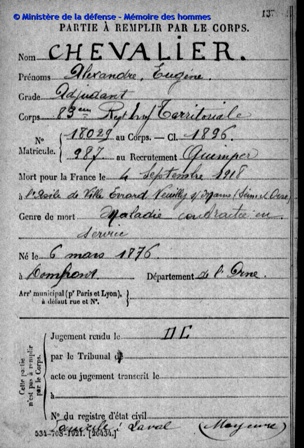 © Ministère de la défense - Mémoire des hommes
PARTIE À REMPLIR PAR LE CORPS.
Nom CHEVALIER.
Prénoms Alexandre, Eugène.
Grade Adjudant
Corps 83ème Regt Inf Territoriale
N° Matricule. 18029 au Corps. — Cl. 1896
987 au Recrutement Quimper
Mort pour la France le 4 septembre 1918
à l'Asile de Ville Evrard Neuilly s/ Marne (Seine et Oise)
Genre de mort Maladie contractée en
service
Né le 6 mars 1876
à Domfront Département de l'Orne
Arrt municipal (pr Paris et Lyon),
à défaut rue et N°.
Cette partie n'est pas à remplir par le Corps.
Jugement rendu le
par le Tribunal d
acte ou jugement transcrit le
à
N° du registre d'état civil
Laval (Mayenne)
534-708-1921. [26434.]